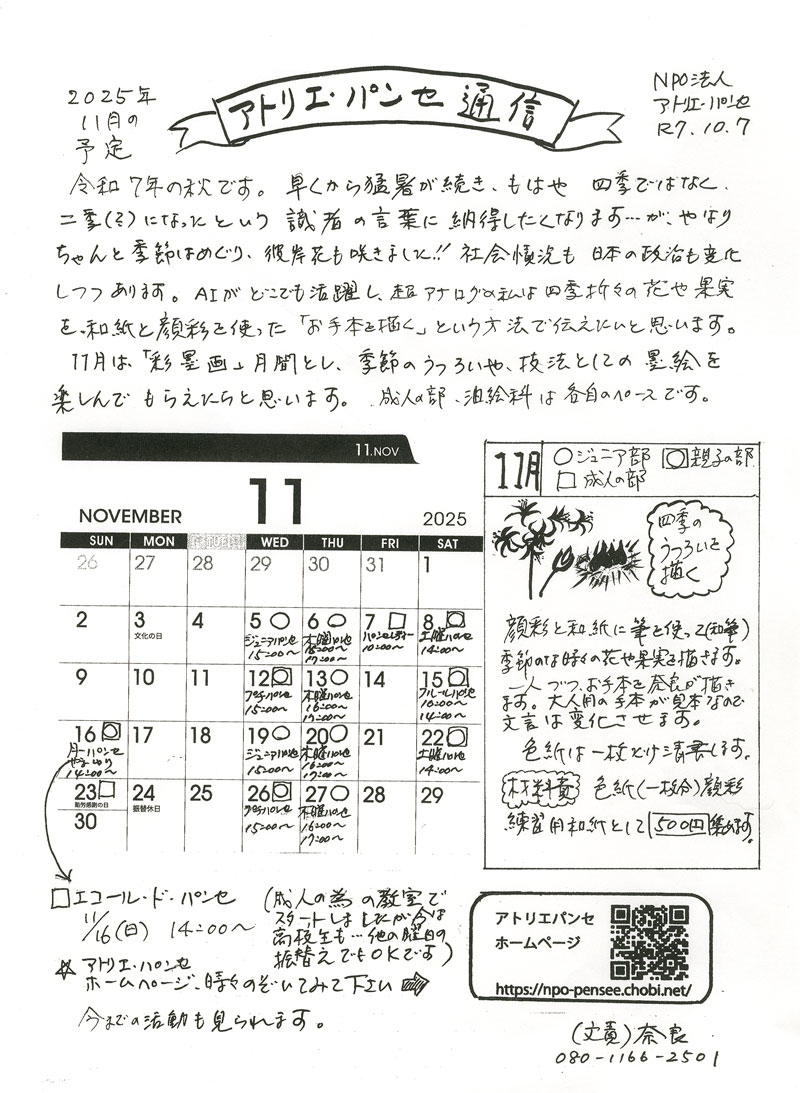 2025年
11月の
予定
アトリエ・パンセ 通信
NPO法人
アトリエ・パンセ
R7.10.7
令和7年の秋です。早くから猛暑が続き、もはや 四季ではなく、
二季(き)になったという 識者の言葉に 納得したくなります…が、やはり
ちゃんと季節はめぐり、彼岸花も咲きました!! 社会情況も 日本の政治も変化
しつつ あります。AIが どこでも活躍し、超アナログの私は四季折々の花や果実
を、和紙と顔彩を使った「お手本を描く」という方法で伝えたいと思います。
11月は、「彩墨画」月間とし、季節のうつろいや、技法としての墨絵を
楽しんで もらえたらと思います。 成人の部、油絵科は各自のペースです。
11.NOV
NOVEMBER 11 2025
SUN MON TUE WED THU FRI SAT
26 27 28 29 30 31 1
2 3 4 5 ○ 6 ○ 7 □ 8
文化の日
ジュニアパンセ 15:00〜
木曜パンセ 16:00〜 17:00〜
パンセティー 10:00〜
土曜パンセ 14:00〜
9 10 11 12 13 ○ 14 15
プチパンセ 15:00〜
木曜パンセ 16:00〜 17:00〜
ブルールパンセ 10:00〜 14:00〜
16 17 18 19 ○ 20 ○ 21 22
月一パンセ
14:00〜
ジュニアパンセ 15:00〜
木曜パンセ 16:00〜 17:00〜
土曜パンセ 14:00〜
23 □ 24 25 26 27 ○ 28 29
勤労感謝の日
振替休日
プチパンセ 15:00〜
木曜パンセ 16:00〜 17:00〜
30
11月
○ジュニア部 親子の部
□成人の部
四季の
うつろいを
描く
顔彩と和紙に筆を使って(和筆)
季節の時々の花や果実を描きます。
一人づつ、お手本を奈良が描き
ます。大人用の手本が見本なので
文言は変化させます。
色紙は一枚だけ清書します。
材料費 色紙(一枚分)顔彩
練習用和紙として 500円 集めます。
□エコール・ド・パンセ
11/16(日) 14:00〜
(成人の為の教室で
スタートしましたが今は
高校生も…他の曜日の
振替えでもOKです)
☆ アトリエ・パンセ
ホームページ、時々のぞいてみて下さい ⇨
今までの活動も見られます。
アトリエパンセ
ホームページ
https://npo-pensee.chobi.net/
(文責)奈良
080-1166-2501